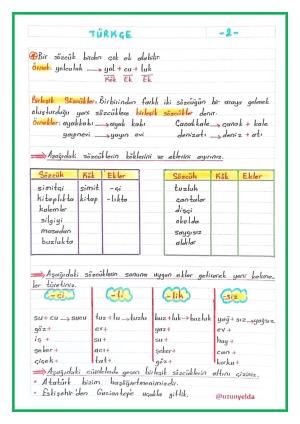 TÜRKÇE -2-
Bir sözcük birden çok ek alabilir.
Örnek: yolculuk → yol + cu + luk
Kök Ek Ek
Birleşik Sözcükler: Birbirinden farklı iki sözcüğün bir araya gelerek
oluşturduğu yeni sözcüklere birleşik sözcükler denir.
Örnekler: ayakkabı → ayak kabı Çanakkale → çanak + kale
yayınevi → yayın evi denizatı → deniz + atı
Aşağıdaki sözcüklerin köklerini ve eklerini ayırınız.
Sözcük Kök Ekler
simitçi simit -çi
kitaplıkta kitap -lıkta
kalemler
silgiyi
masadan
buzlukta
Sözcük Kök Ekler
tuzluk
çantalar
dişçi
okulda
saygısız
aldılar
Aşağıdaki sözcüklerin sonuna uygun ekler getirerek yeni kelime-
ler türetiniz.
-ci -li -lik -siz
su + cu → sucu tuz + lu → tuzlu buz + luk → buzluk yağ + sız → yağsız
göz + ev + yaz + ev +
iş + su + göz + huy +
şeker + acı + şeker + can +
çiçek + tat + kat + tat +
Aşağıdaki cümlelerde geçen birleşik sözcüklerin altını çiziniz.
Atatürk bizim başöğretmenimizdir.
Eskişehir'den Gaziantep'e uçakla gittik.
@uzunyelda